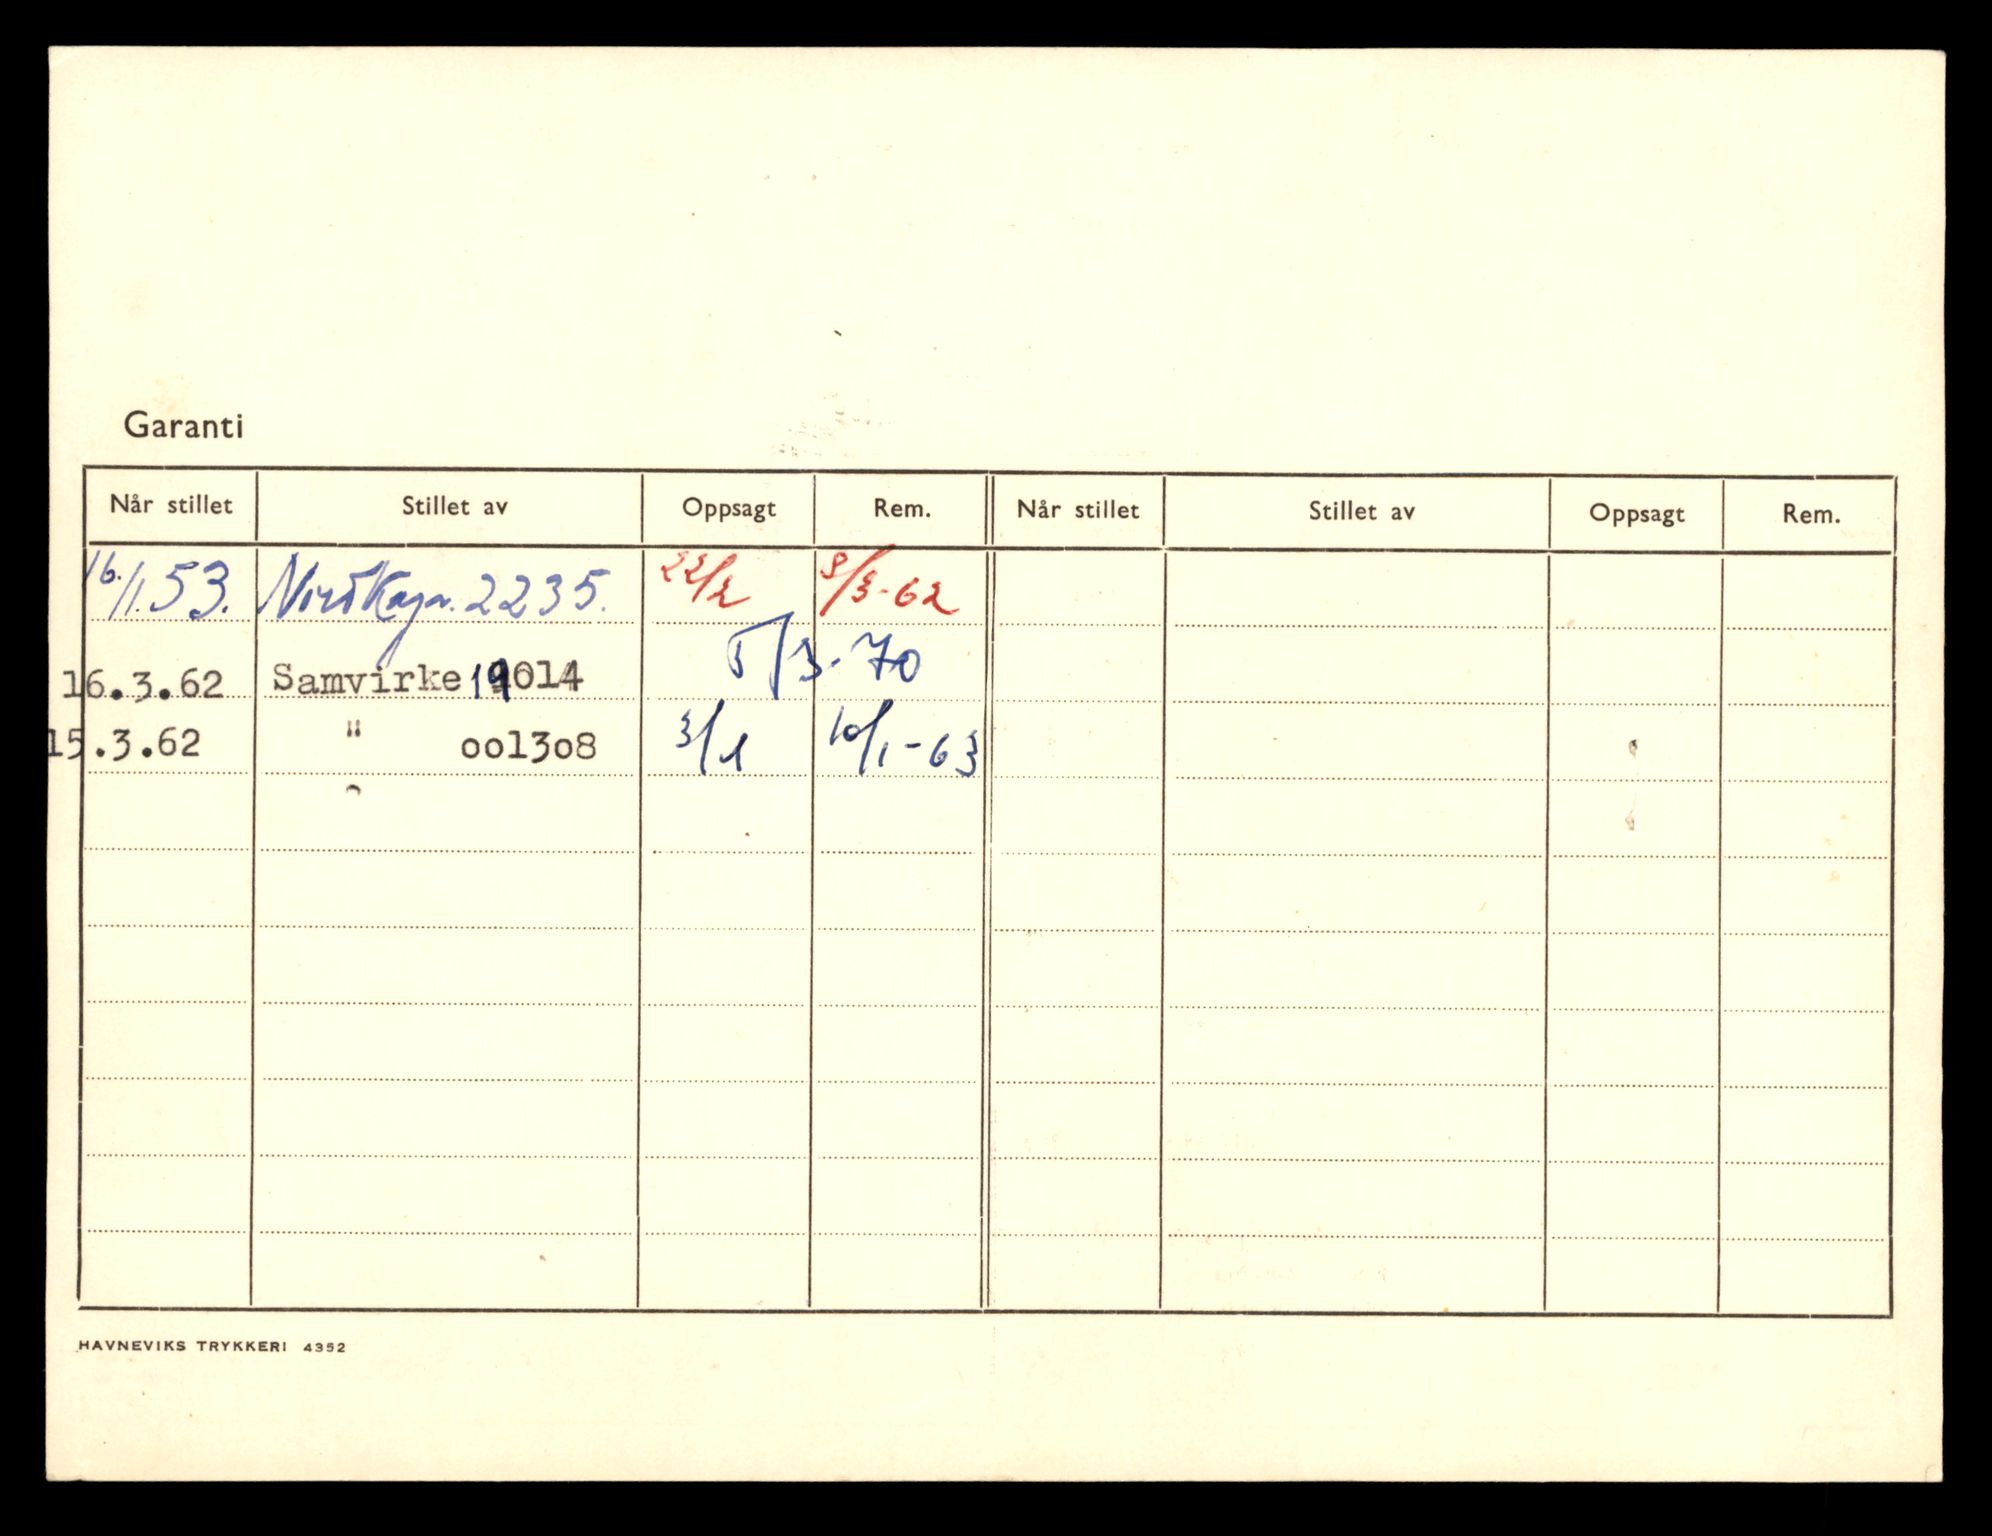 Garanti
Når stillet Stillet av Oppsagt Rem. Når stillet Stillet av Oppsagt Rem.
16./1.53. 2235. 22/2 9/3-62
16.3.62 Samvirke 19014 5/3-70
15.3.62 " 001308 3/1 10/1-63
HAVNEVIKS TRYKKERI 4352